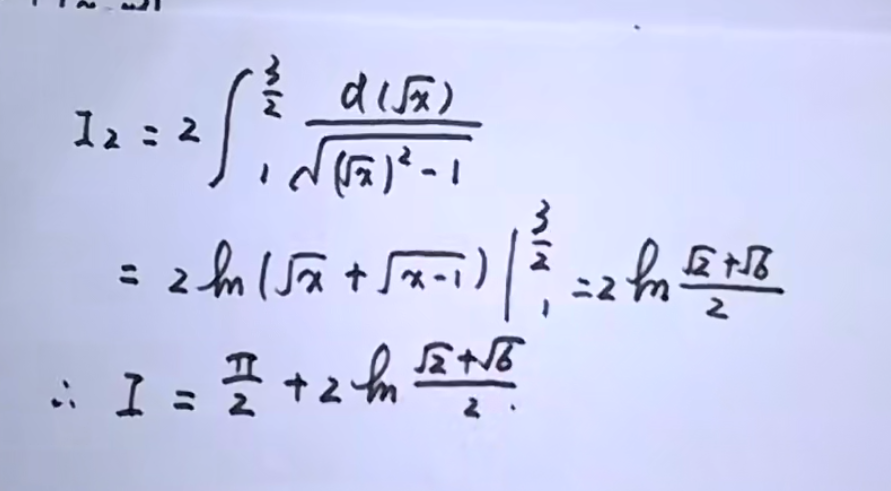 I₂ = 2 ∫₁^{3/2} d(√x) / √((√x)² - 1)
= 2 ln(√x + √(x-1)) |₁^{3/2} = 2 ln (√2+√6)/2
∴ I = π/2 + 2 ln (√2+√6)/2.